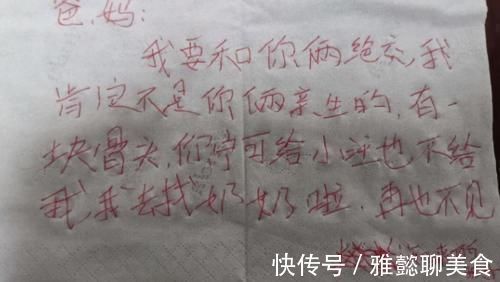 爸、妈：
我要和你俩绝交,我
肯定不是你俩亲生的,有一
块骨头,你宁可给小旺也不给
我,我去找奶奶啦,再也不见
快传号/雅懿聊美食